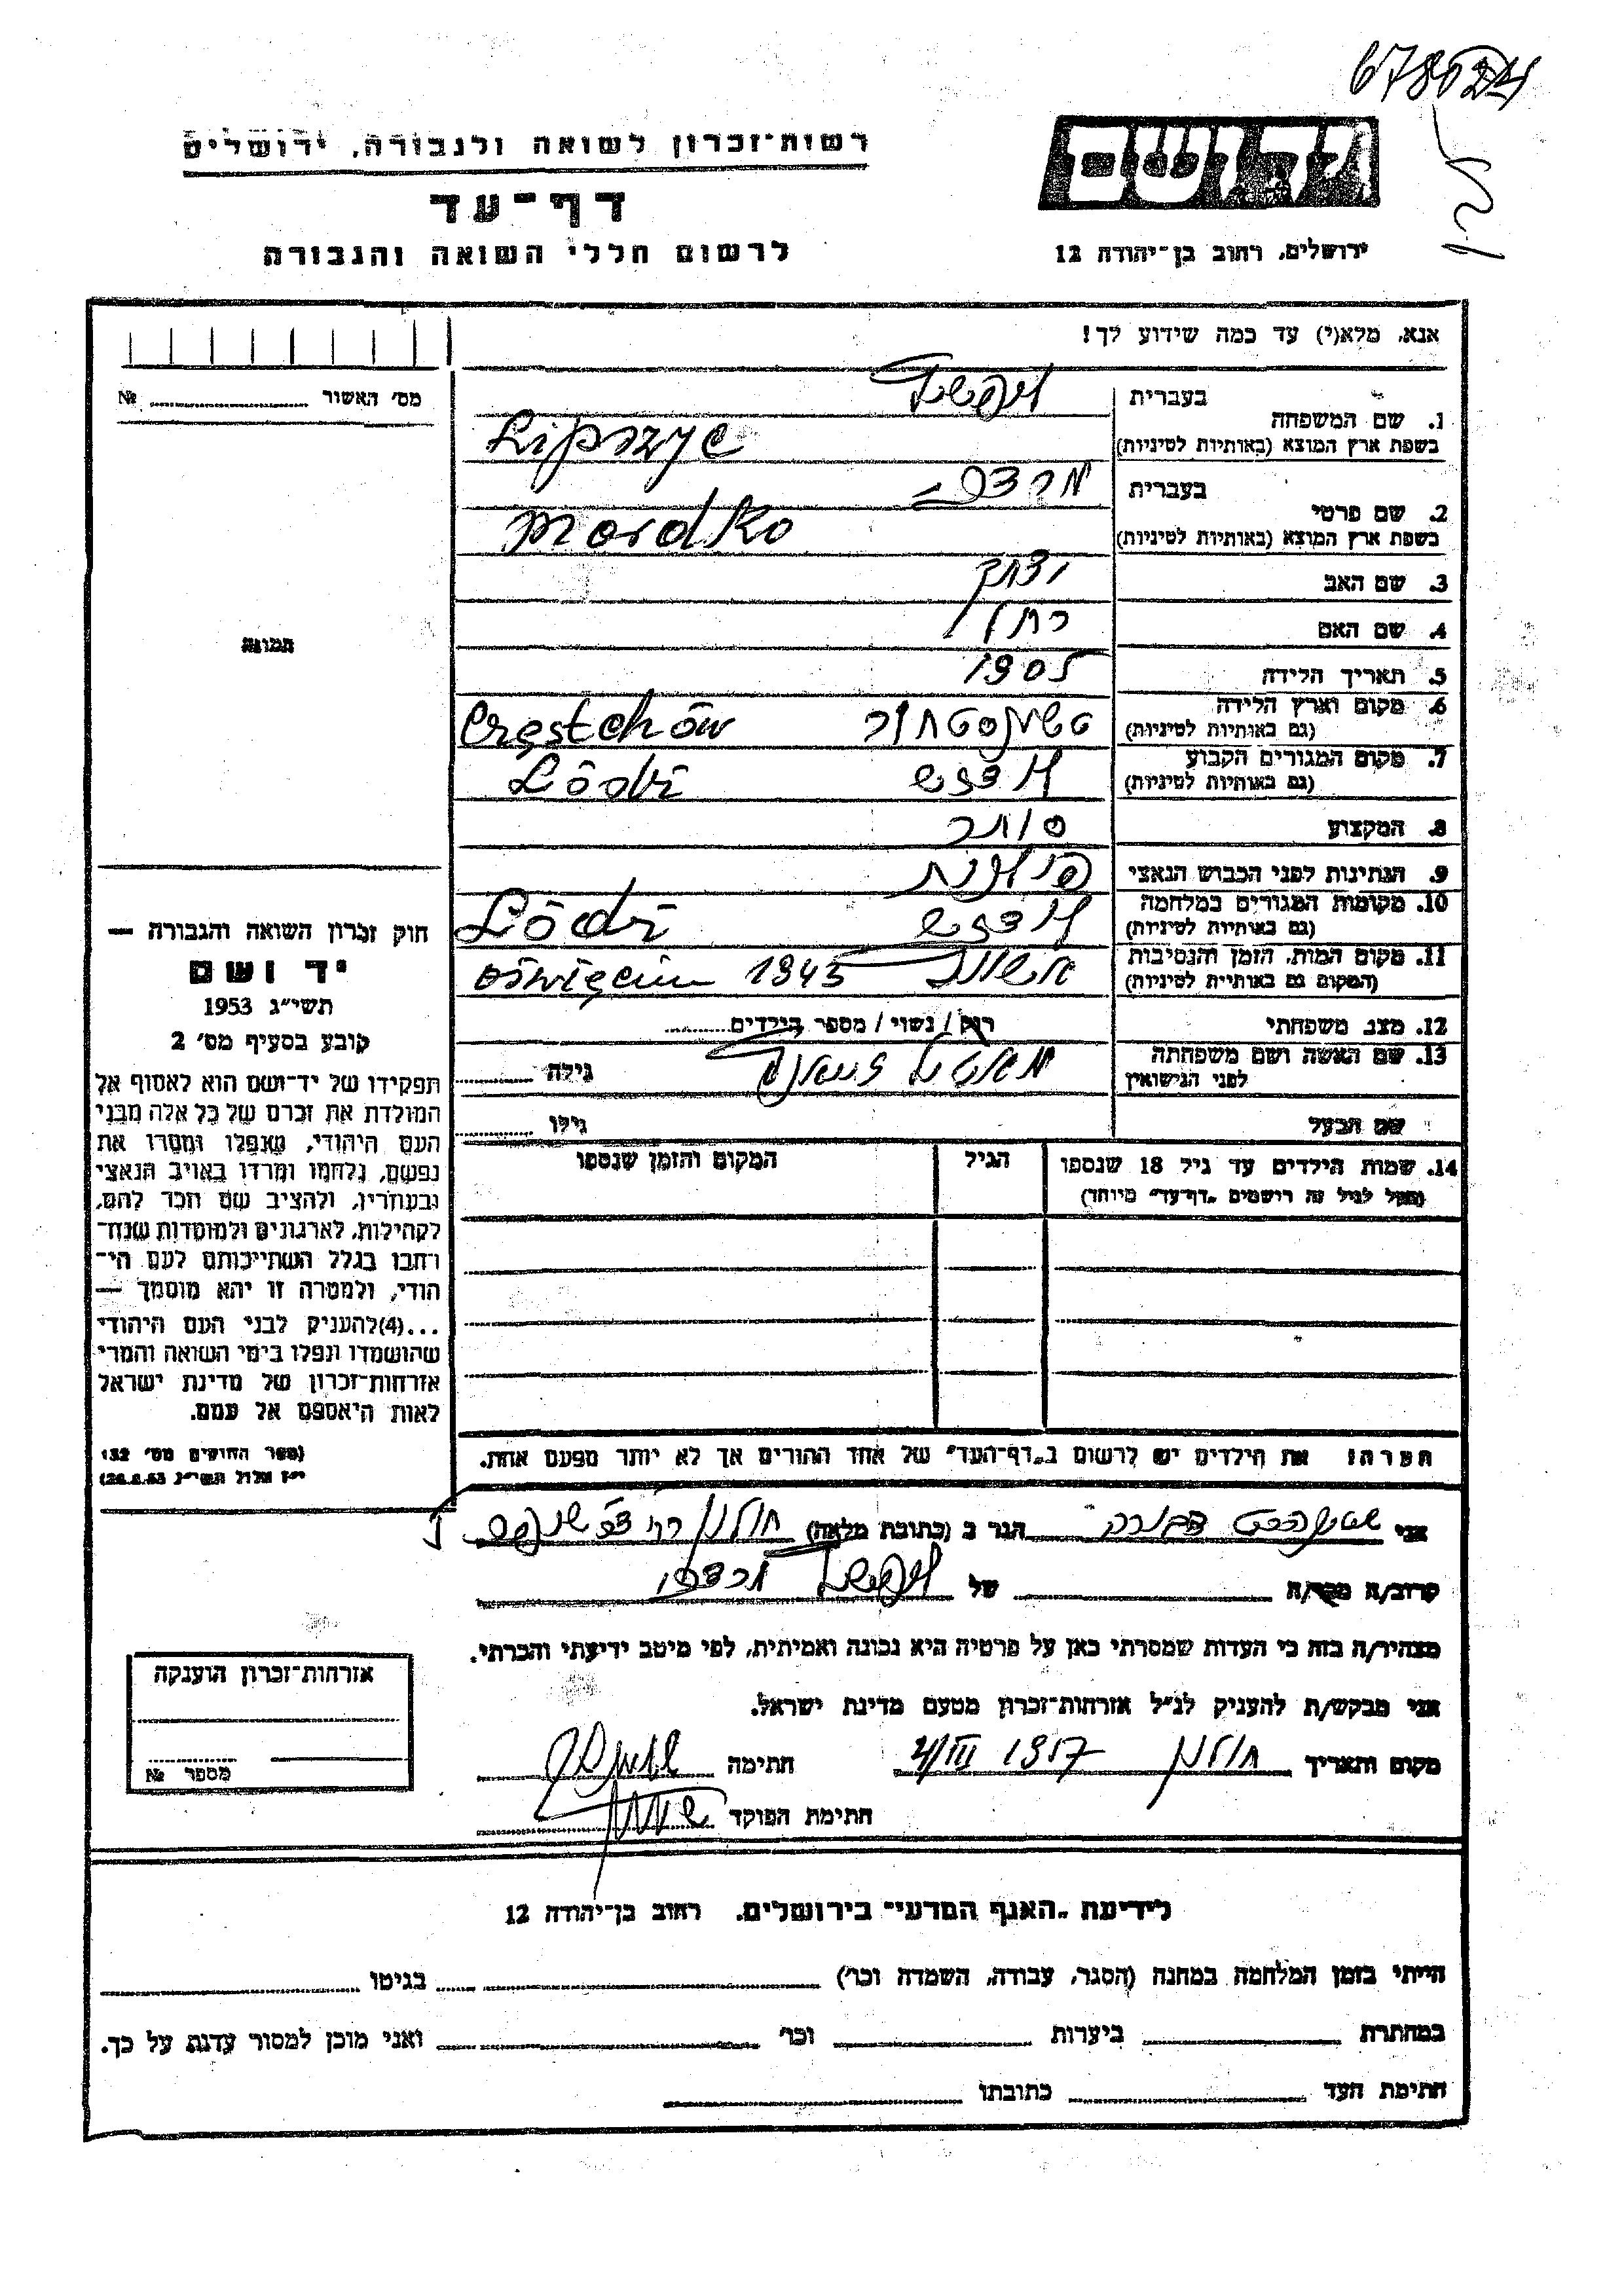 רשות־זכרון לשואה ולגבורה, ירושלים
דף־עד
לרשום חללי השואה והגבורה
יד ושם
ירושלים, רחוב בן־יהודה 12
אנא, מלא(י) עד כמה שידוע לך!
מס׳ האשור № 
תמונה
בעברית
1. שם המשפחה
בשפת ארץ המוצא (באותיות לטיניות) Lipszyc
בעברית מרדכי
2. שם פרטי
בשפת ארץ המוצא (באותיות לטיניות) Mordko
3. שם האב יצחק
4. שם האם רחל
5. תאריך הלידה 1905
6. מקום וארץ הלידה
(גם באותיות לטיניות) Częstchów
7. מקום המגורים הקבוע
(גם באותיות לטיניות) Lódź
8. המקצוע סוחר
9. הנתינות לפני הכבוש הנאצי פולנית
10. מקומות המגורים במלחמה
(גם באותיות לטיניות) Lódź
11. מקום המות, הזמן והנסיבות
(המקום גם באותיות לטיניות) Oświęcim 1943
12. מצב משפחתי רווק / נשוי / מספר הילדים
13. שם האשה ושם משפחתה
לפני הנישואין גילה
שם הבעל גילו
14. שמות הילדים עד גיל 18 שנספו הגיל המקום והזמן שנספו
(מעל לגיל זה רושמים „דף־עד״ מיוחד)
הערה: את הילדים יש לרשום ב„דף־העד״ של אחד ההורים אך לא יותר מפעם אחת.
חוק זכרון השואה והגבורה —
יד ושם
תשי״ג 1953
קובע בסעיף מס׳ 2
תפקידו של יד־ושם הוא לאסוף אל
המולדת את זכרם של כל אלה מבני
העם היהודי, שנפלו ומסרו את
נפשם, נלחמו ומרדו באויב הנאצי
ובעוזריו, ולהציב שם וזכר להם,
לקהילות, לארגונים ולמוסדות שנח־
רבו בגלל השתייכותם לעם הי־
הודי, ולמטרה זו יהא מוסמך —
...(4)להעניק לבני העם היהודי
שהושמדו ונפלו בימי השואה והמרי
אזרחות־זכרון של מדינת ישראל
לאות היאספם אל עמם.
(ספר החוקים מס׳ 132
י״ז אלול תשי״ג 28.8.53)
אני הגר ב (כתובת מלאה) חולון
קרוב/ה מכר/ה של מרדכי
מצהיר/ה בזה כי העדות שמסרתי כאן על פרטיה היא נכונה ואמיתית, לפי מיטב ידיעתי והכרתי.
אני מבקש/ת להעניק לנ״ל אזרחות־זכרון מטעם מדינת ישראל.
מקום ותאריך חולון חתימה
חתימת הפוקד
אזרחות־זכרון הוענקה
מספר №
לידיעת „האגף המדעי״ בירושלים. רחוב בן־יהודה 12
הייתי בזמן המלחמה במחנה (הסגר, עבודה, השמדה וכו׳) בגיטו
במחתרת ביערות וכו׳ ואני מוכן למסור עדות על כך.
חתימת העד כתובתו